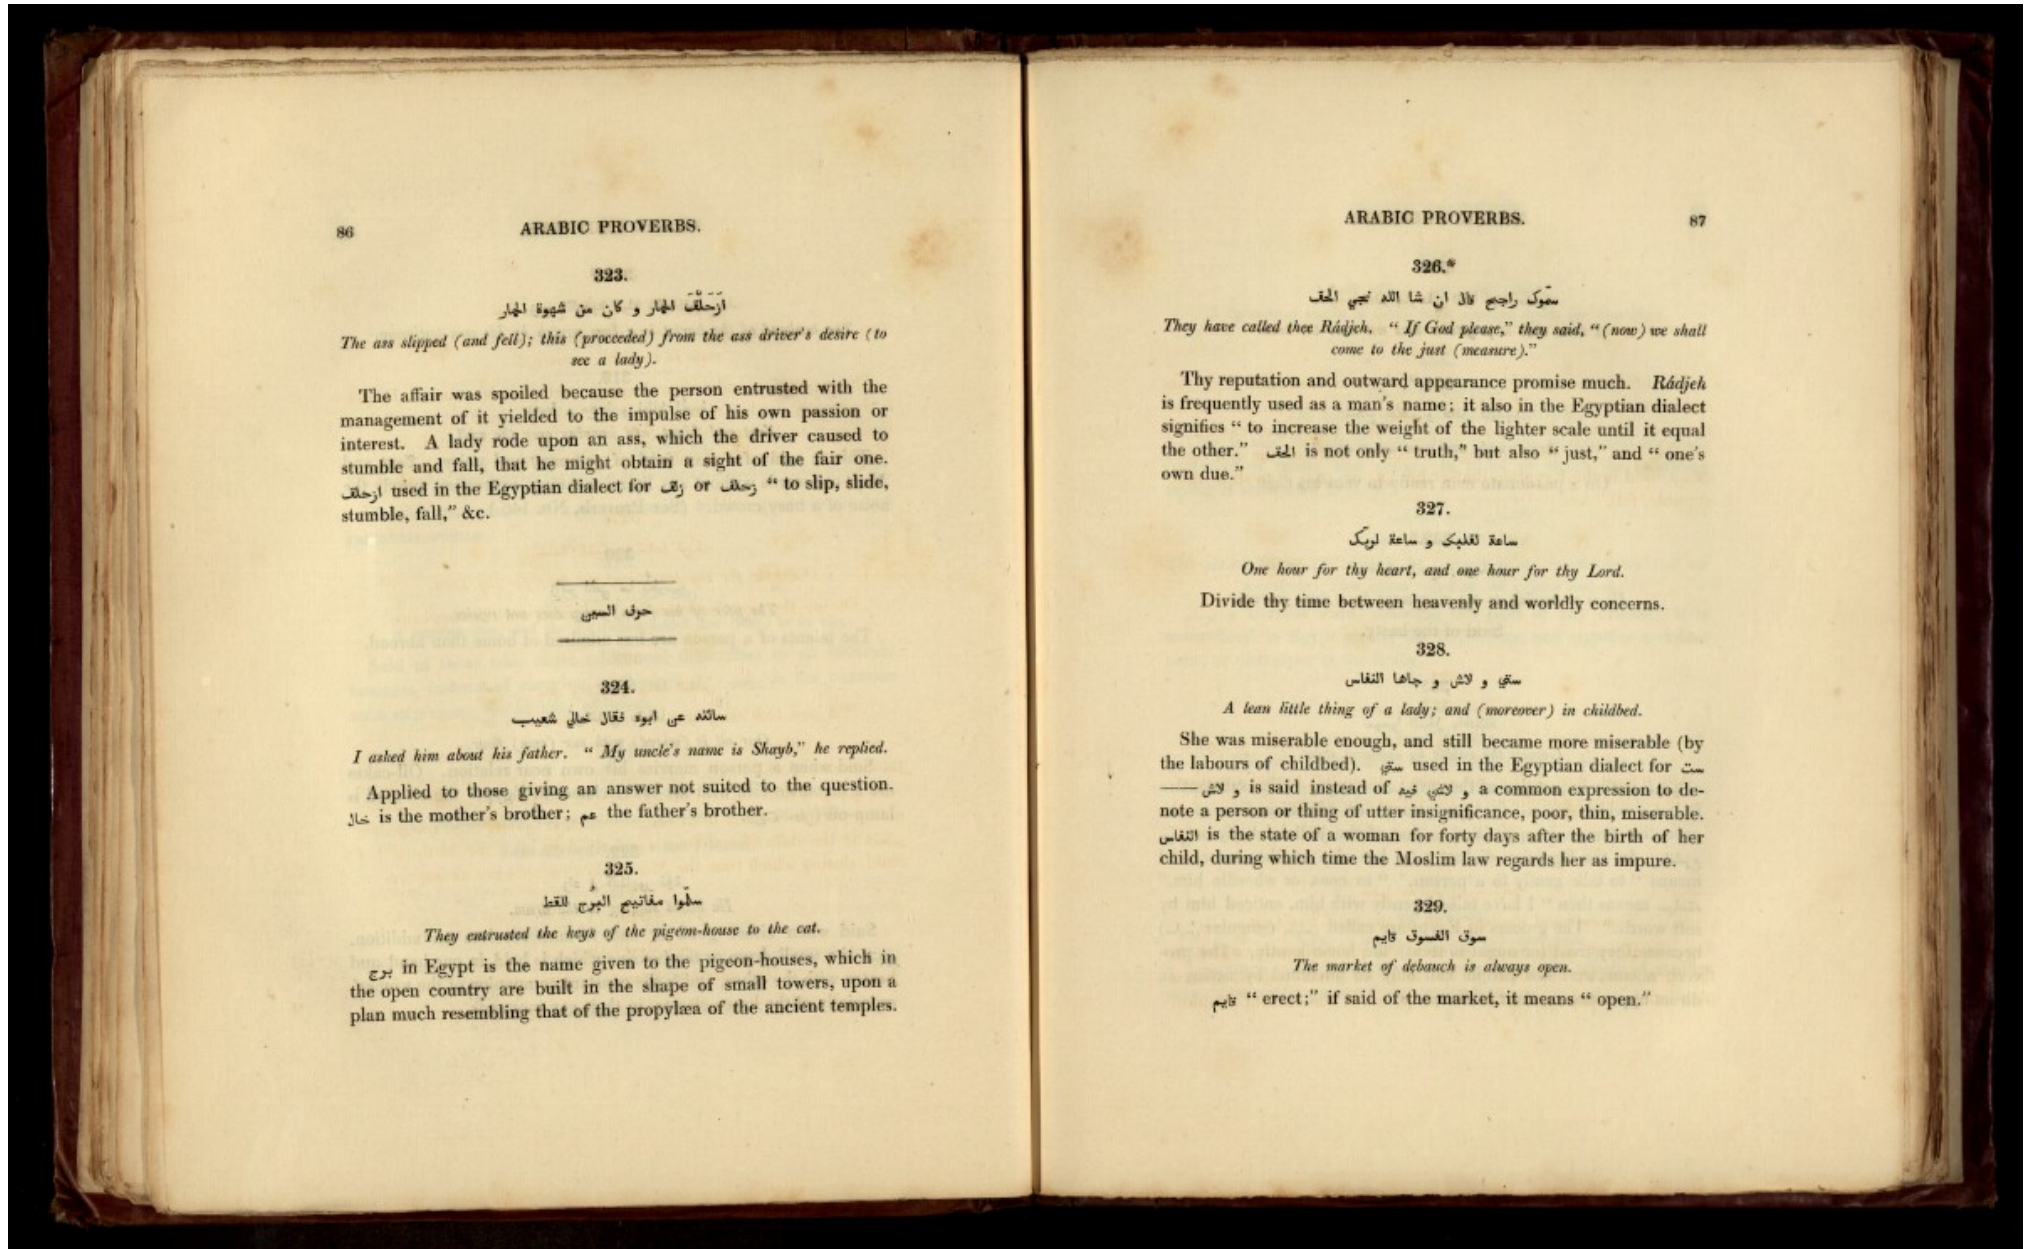 86
ARABIC PROVERBS.
323.
ازحلق الحمار و كان من شهوة الحمار
The ass slipped (and fell); this (proceeded) from the ass driver's desire (to
see a lady).
The affair was spoiled because the person entrusted with the
management of it yielded to the impulse of his own passion or
interest. A lady rode upon an ass, which the driver caused to
stumble and fall, that he might obtain a sight of the fair one.
ازحلق used in the Egyptian dialect for زلق or زحلق “ to slip, slide,
stumble, fall,” &c.
حرف السين
324.
سالته عن ابوه فقال خالي شعيب
I asked him about his father. “ My uncle's name is Shayb,” he replied.
Applied to those giving an answer not suited to the question.
خال is the mother's brother; عم the father's brother.
325.
سلّموا مفاتيح البُرج للقط
They entrusted the keys of the pigeon-house to the cat.
برج in Egypt is the name given to the pigeon-houses, which in
the open country are built in the shape of small towers, upon a
plan much resembling that of the propylæa of the ancient temples.
ARABIC PROVERBS.
87
326.*
سمّوك راجح قال ان شا الله نجي الحق
They have called thee Rádjeh. “ If God please,” they said, “ (now) we shall
come to the just (measure).”
Thy reputation and outward appearance promise much. Rádjeh
is frequently used as a man's name; it also in the Egyptian dialect
signifies “ to increase the weight of the lighter scale until it equal
the other.” الحق is not only “ truth,” but also “ just,” and “ one's
own due.”
327.
ساعة لقلبك و ساعة لربّك
One hour for thy heart, and one hour for thy Lord.
Divide thy time between heavenly and worldly concerns.
328.
ستي و لاش و جاها النفاس
A lean little thing of a lady; and (moreover) in childbed.
She was miserable enough, and still became more miserable (by
the labours of childbed). ستي used in the Egyptian dialect for ست
—— و لاش is said instead of و لاشي فيه a common expression to de-
note a person or thing of utter insignificance, poor, thin, miserable.
النفاس is the state of a woman for forty days after the birth of her
child, during which time the Moslim law regards her as impure.
329.
سوق الفسوق قايم
The market of debauch is always open.
قايم “ erect;” if said of the market, it means “ open.”